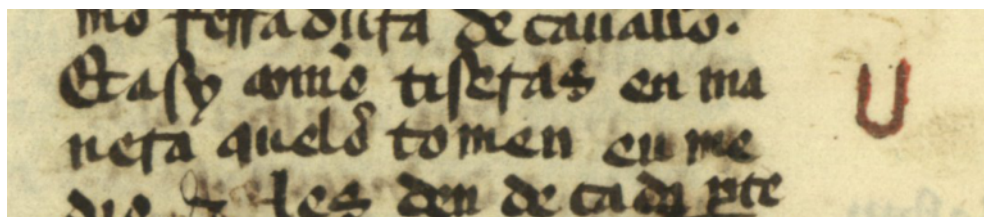 mo ferradura de cauallo.
Et asy com̃o tiseras en ma
nera quelos tomen en me
dio & les den de cada p̱te
U